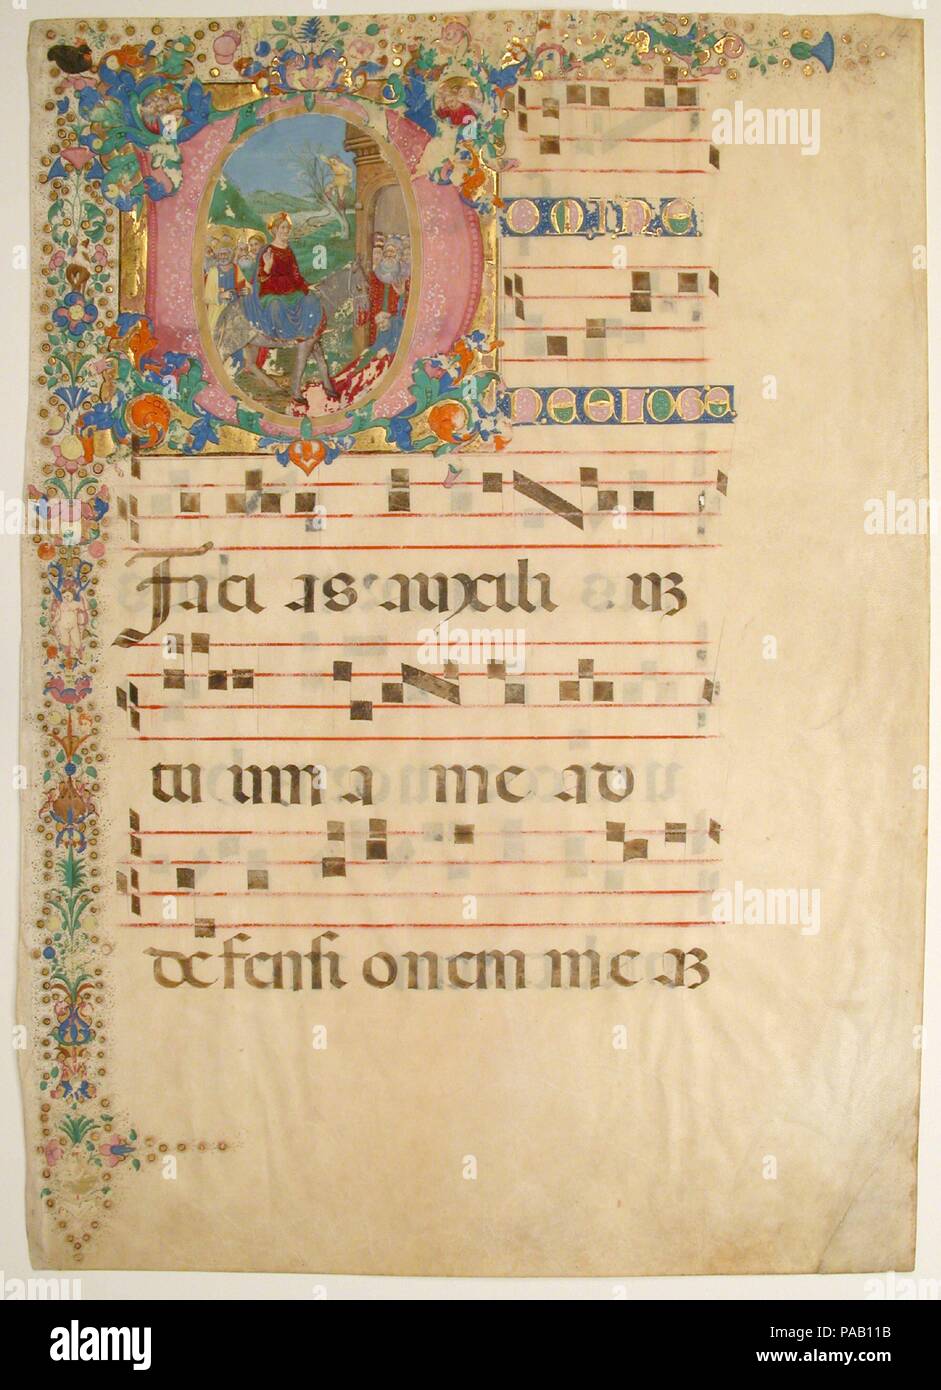 DOMINE
NE
Faci as auxili uʒ
tu um a me ad
defensi onem me aʒ
alamy
Image ID: PAB11B
www.alamy.com